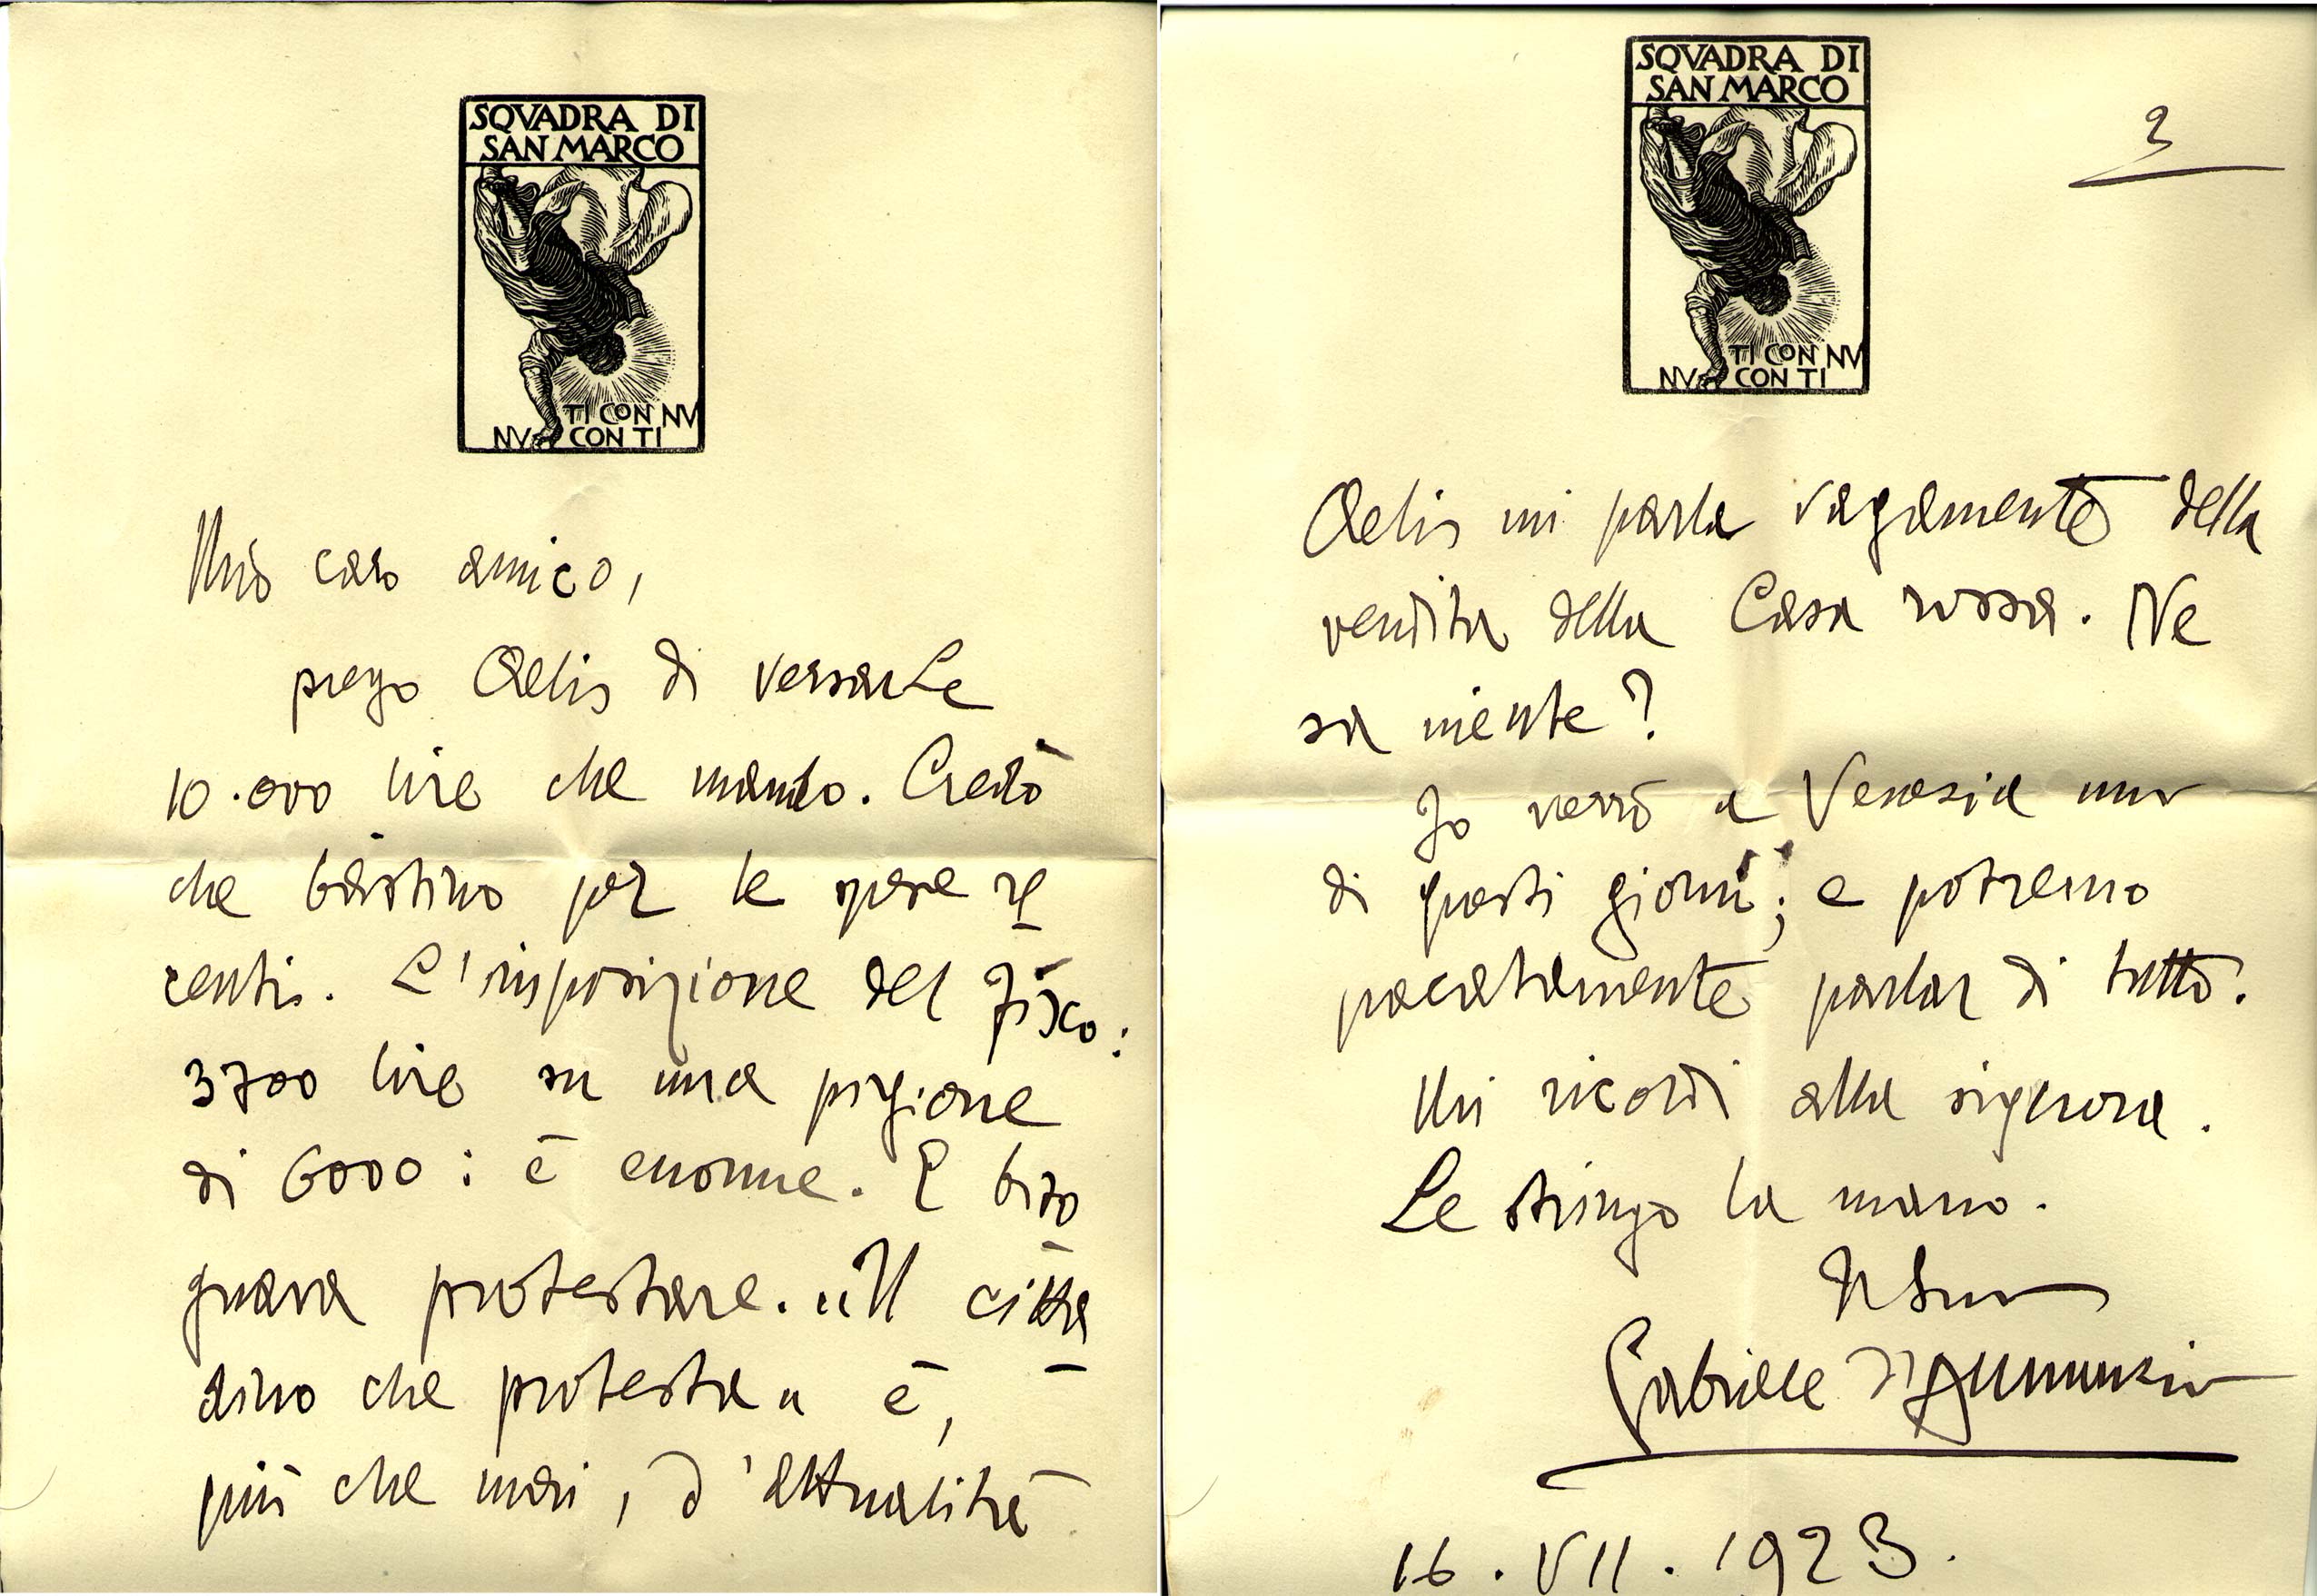 SQVADRA DI
SAN MARCO
TI CON NV
NV CON TI
Mio caro amico,
prego Aelis di versarLe
10.000 lire che mando. Credo
che bastino per le spese re
centi. L'imposizione del Fisco:
3700 lire su una pigione
di 6000: è enorme. E biso
gnava protestare. "Il citta
dino che protesta" è,
più che mai, d'attualità
SQVADRA DI
SAN MARCO
2
TI CON NV
NV CON TI
Aelis mi parla vagamente della
vendita della Casa rossa. Ne
sa niente?
Io verrò a Venezia uno
di questi giorni; e potremo
pacatamente parlar di tutto.
Mi ricordi alla signora.
Le stringo la mano.
Il Suo
Gabriele d'Annunzio
16.VII.1923.